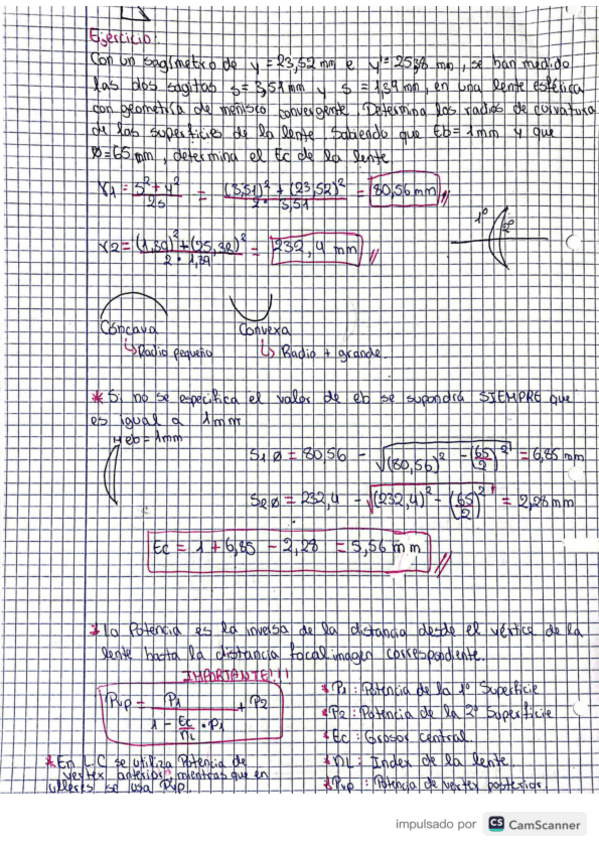 Ejercicio:
Con un sagímetro de y = 23,52 mm e y' = 25,38 mm, se han medido
las dos sagitas s = 3,51 mm y s = 1,39 mm, en una lente esférica
con geometría de menisco convergente. Determina los radios de curvatura
de las superficies de la lente. Sabiendo que Eb = 1 mm y que
Ø = 65 mm, determina el Ec de la lente
r1 = s² + y² / 2s = (3,51)² + (23,52)² / 2 · 3,51 = 80,56 mm //
r2 = (1,39)² + (25,38)² / 2 · 1,39 = 232,4 mm //
1º 2º
Cóncava Convexa
↳ Radio pequeño ↳ Radio + grande.
* Si no se especifica el valor de eb se supondrá SIEMPRE que
es igual a 1mm
eb = 1mm
S1Ø = 80,56 - √(80,56)² - (65/2)² = 6,85 mm
S2Ø = 232,4 - √(232,4)² - (65/2)² = 2,28 mm
Ec = 1 + 6,85 - 2,28 = 5,56 mm //
* La Potencia es la inversa de la distancia desde el vértice de la
lente hasta la distancia focal imagen correspondiente.
IMPORTANTE!!!
Pvp = P1 / 1 - Ec/nL · P1 + P2
* P1: Potencia de la 1º Superficie
* P2: Potencia de la 2º Superficie
* Ec: Grosor central.
* nL: Index de la lente.
* Pvp: Potencia de vertex posterior.
* En L.C se utiliza Potencia de
vertex anterior, mientras que en
ulleres se usa Pvp.
impulsado por CS CamScanner